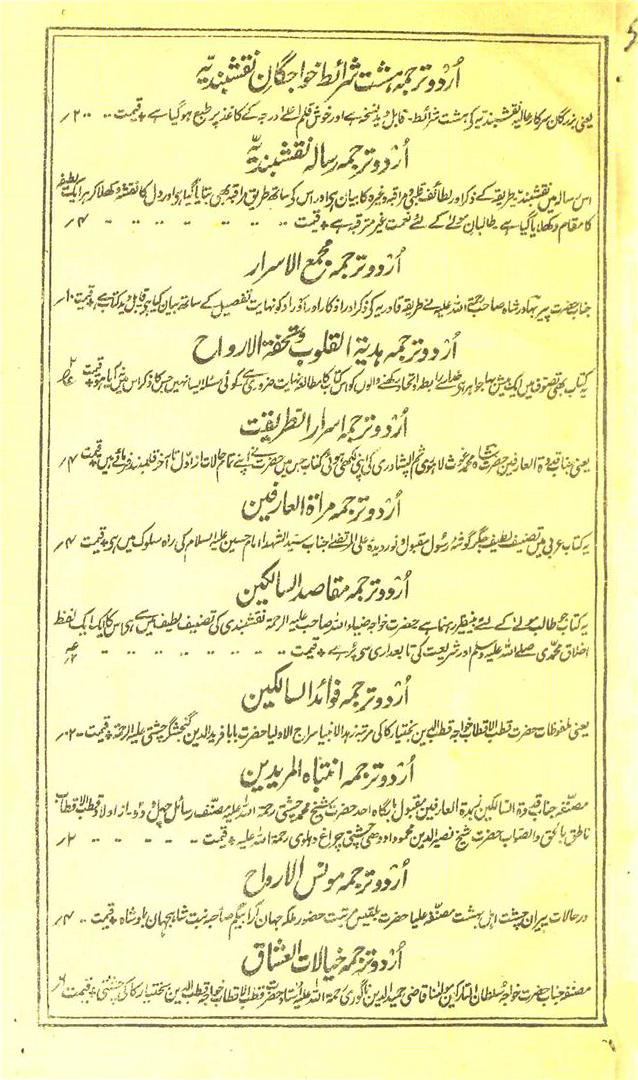 اُردو ترجمہ ہشت شرائط خواجگان نقشبندیہ
یعنی بزرگان سرکار عالیہ نقشبندیہ کی ہشت شرائط۔ قابل دید نسخہ ہے اور خوش قلم اعلےٰ درجہ کے کاغذ پر طبع ہوگیا ہے + قیمت ۲/
اُردو ترجمہ رسالہ نقشبندیہ
اس رسالہ میں نقشبندیہ طریقہ کے ذکر اور لطائف قلبی و مراقبہ وغیرہ کا بیان ہے اور اس کے ساتھ طریق مراقبہ بھی بتایا گیا ہے اور دل کا نقشہ دکھلا کر ہر ایک لطیفہ
کا مقام دکھلایا گیا ہے۔ طالبان مولےٰ کے لئے نعمت غیر مترقبہ ہے + قیمت ۴/
اُردو ترجمہ مجمع الاسرار
جناب حضرت پیر بہادر شاہ صاحب رحمۃ اللہ علیہ نے طریقہ قادریہ کو ذکر اور اذکار اور اوراد کو نہایت تفصیل کے ساتھ بیان کیا ہے قابل دید کتاب ہے + قیمت ۱۰/
اُردو ترجمہ ہدیۃ القلوب و تحفۃ الارواح
یہ کتاب بھی تصوف میں ایک بیش بہا جواہر ہے خدا سے رابطہ و اتحاد رکھنے والوں کو اس کتاب کا مطالعہ نہایت ضروری ہے کوئی مسئلہ ایسا نہیں جس کا ذکر اس میں نہ آیا ہو + قیمت
اُردو ترجمہ اسرار الطریقت
یعنی جناب قدوۃ العارفین حضرت شاہ محمد غوث لاہوری ثم الپشاوری کی اپنی لکھی ہوئی کتاب جس میں حضرت نے اپنے تمام حالات از اول تا آخر قلمبند فرمائے ہیں + قیمت ۴/
اُردو ترجمہ مراۃ العارفین
یہ کتاب عربی میں تصنیف لطیف جگر گوشہ رسول مقبول و نور دیدہ علی المرتضےٰ جناب سید الشہدا امام حسین علیہ السلام کی راہ سلوک میں ہے + قیمت ۴/
اُردو ترجمہ مقاصد السالکین
یہ کتاب جو طالب مولےٰ کے لئے بینظیر رہنما ہے حضرت خواجہ ضیاء اللہ صاحب علیہ الرحمۃ نقشبندی کی تصنیف لطیف میں سے ہے اس کا ایک ایک لفظ
اخلاق محمدی صلے اللہ علیہ وسلم اور شریعت کی تابعداری سے پُر ہے + قیمت
اُردو ترجمہ فوائد السالکین
یعنی ملفوظات حضرت قطب الاقطاب خواجہ قطب الدین بختیار کاکی مرتبہ زہد الانبیا سراج الاولیا حضرت بابا فرید الدین گنجشکر چشتی علیہ الرحمۃ + قیمت ۲/
اُردو ترجمہ انتباہ المریدین
مصنفہ جناب قدوۃ السالکین زبدۃ العارفین مقبول بارگاہ احد حضرت شیخ محمد چشتی رحمۃ اللہ علیہ مصنف رسائل چہل و دو۔ از اولاد قطب الاقطاب
ناطق بالحق والصواب حضرت شیخ نصیر الدین محمود اودھی چشتی چراغ دہلوی رحمۃ اللہ علیہ + قیمت ۲/
اُردو ترجمہ مونس الارواح
در حالات پیران چشت اہل بہشت مصنفہ علیا حضرت بلقیس مرتبت حضور ملکہ جہان آرا بیگم صاحبہ بنت شاہجہان بادشاہ + قیمت ۴/
اُردو ترجمہ خیالات العشاق
مصنفہ جناب حضرت خواجہ سلطان التارکین مولٰنا قاضی حمید الدین ناگوری رحمۃ اللہ علیہ استاد حضرت قطب الاقطاب خواجہ قطب الدین بختیار کاکی چشتی + قیمت